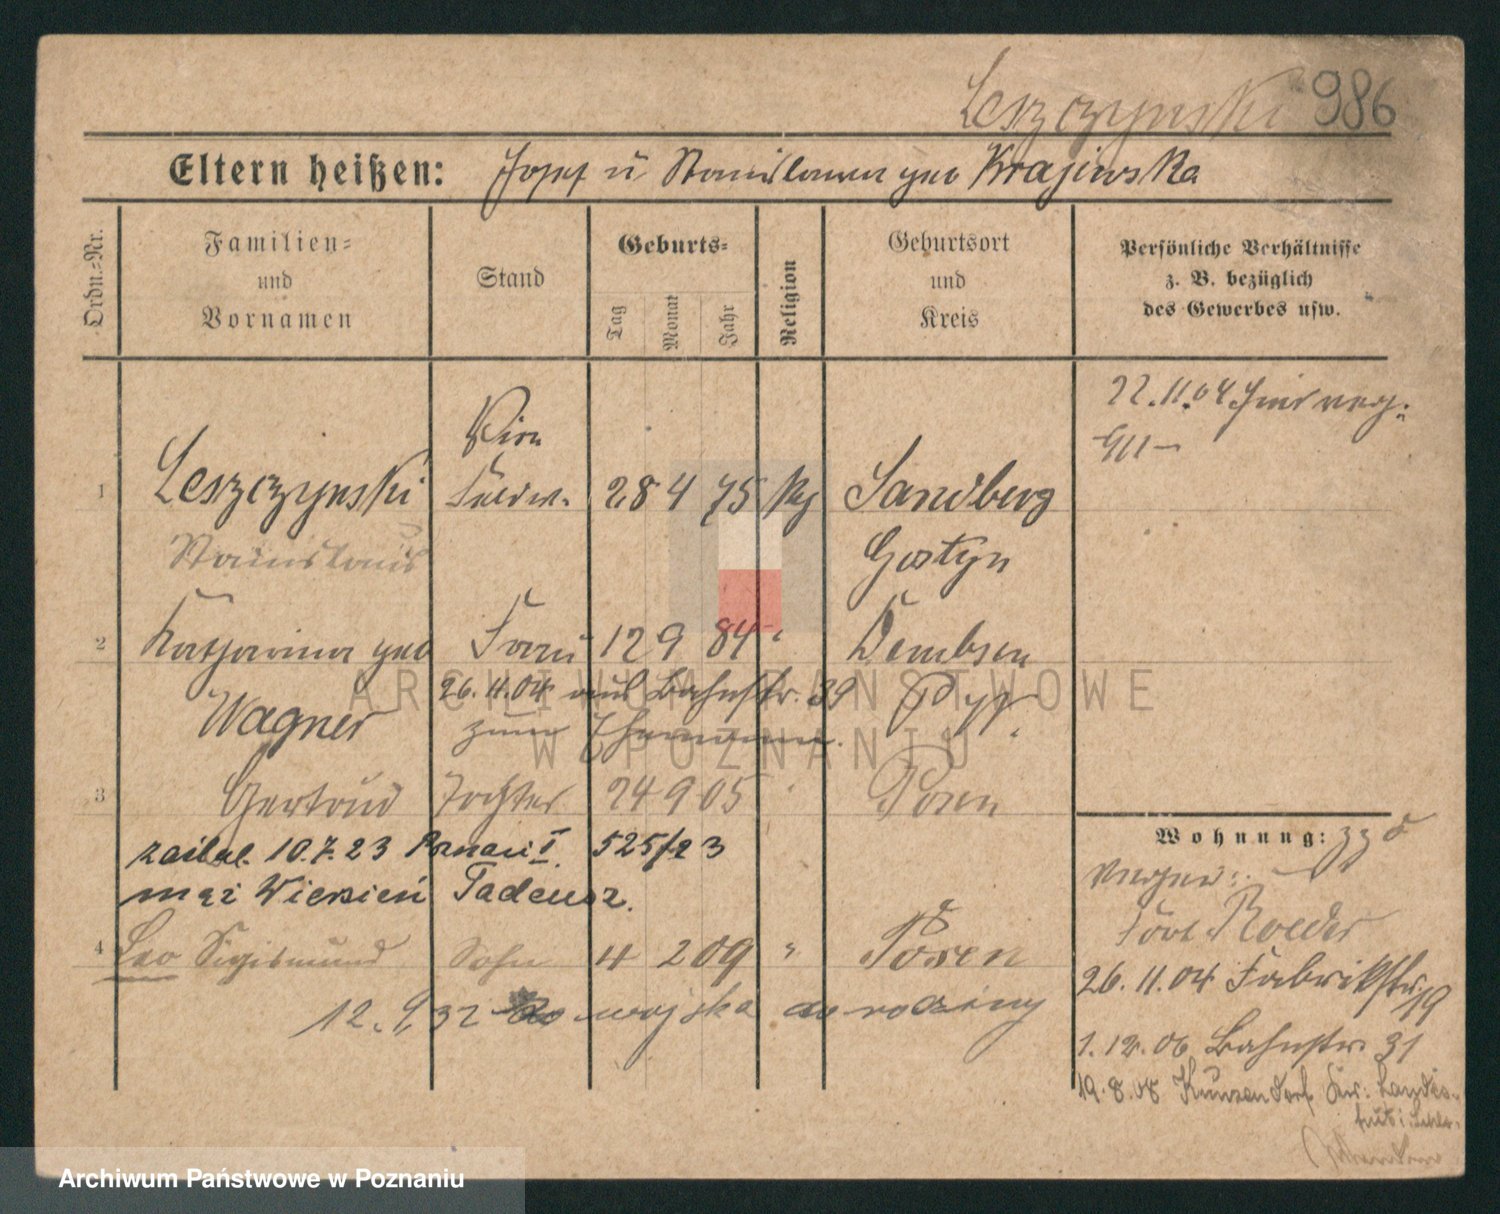 Leszczynski 986
Eltern heißen: Josef u Stanislawa geb Krajewska
Ordn.-Nr.
Familien-
und
Vornamen
Stand
Geburts-
Tag
Monat
Jahr
Religion
Geburtsort
und
Kreis
Persönliche Verhältnisse
z. B. bezüglich
des Gewerbes usw.
22.11.04
1 Leszczynski 28 4 75 Sandberg
Stanislaus Gostyn
2 Katharina geb Frau 12 9 84 " Dembsen
Wagner
26.11.04 aus Bahnstr. 39
zum
3 Gertrud Tochter 24 9 05 " Posen
10.7.23 Poznań I. 525/23
mąż Tadeusz.
4 Leo Sigismund Sohn 4 2 09 " Posen
12.9.32 wojska do rodziny
Wohnung:
Roeder
26.11.04 Fabrikstr. 19
1.12.06 Bahnstr. 31
19.8.08 Kunzendorf Kr: Landes-
hut i. Schles.
ARCHIWUM PAŃSTWOWE
W POZNANIU
Archiwum Państwowe w Poznaniu